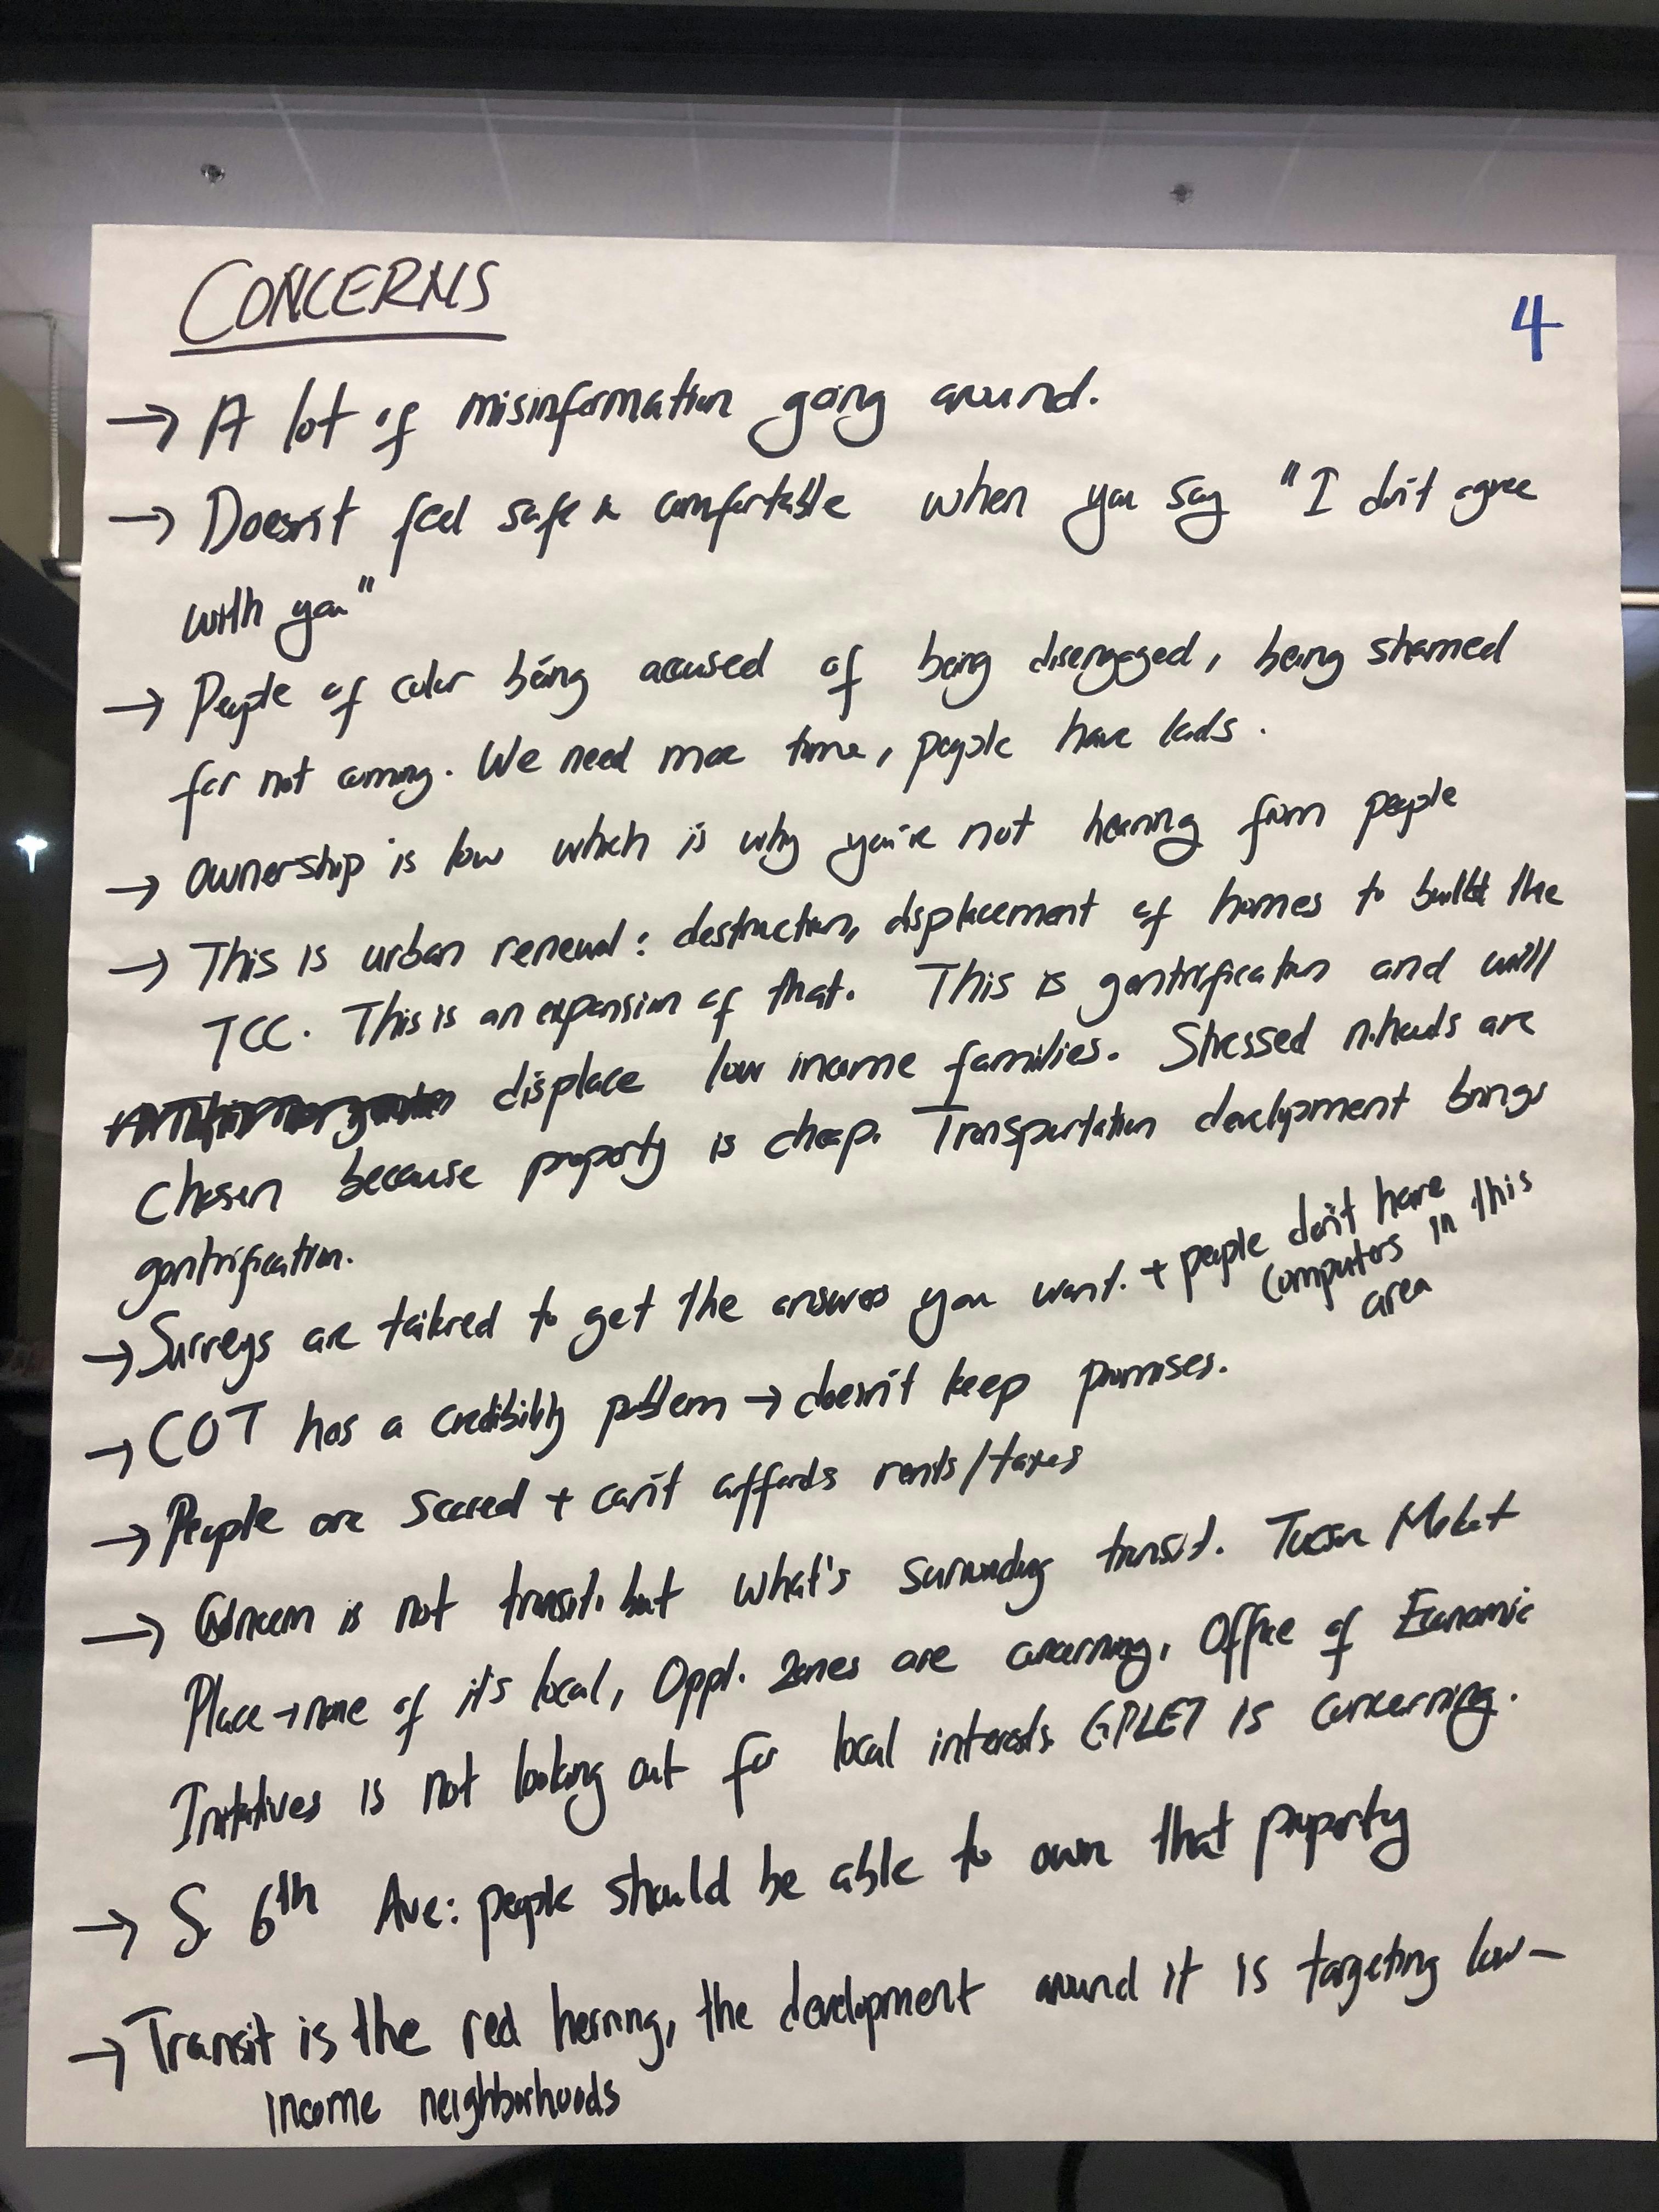 CONCERNS
4
→ A lot of misinformation going around.
→ Doesn't feel safe & comfortable when you say "I don't agree
with you"
→ People of color being accused of being disengaged, being shamed
for not coming. We need more time, people have kids.
→ Ownership is low which is why you're not hearing from people
→ This is urban renewal: destruction, displacement of homes to build the
TCC. This is an expansion of that. This is gentrification and will
displace low income families. Stressed n.hoods are
chosen because property is cheap. Transportation development brings
gentrification.
→ Surveys are tailored to get the answers you want. + people don't have
computers in this
area
→ COT has a credibility problem → doesn't keep promises.
→ People are scared + can't affords rents/taxes
→ Concern is not transit. but what's surrounding transit. Tucson Market
Place → none of it's local, Oppt. Zones are concerning, Office of Economic
Initiatives is not looking out for local interests. GPLET is concerning.
→ S. 6th Ave: people should be able to own that property
→ Transit is the red herring, the development around it is targeting low-
income neighborhoods